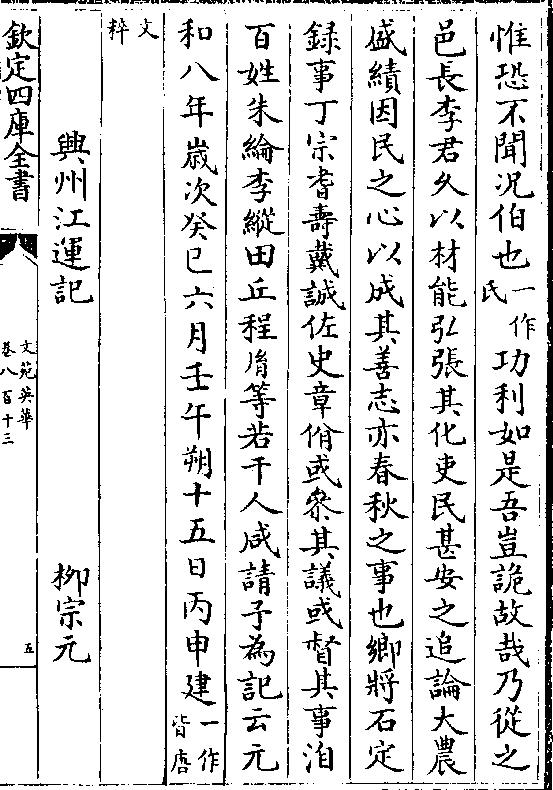 惟恐不聞况伯也一作民功利如是吾豈詭故哉乃從之
邑長李君久以材能弘張其化吏民甚安之追論大農
盛績因民之心以成其善志亦春秋之事也鄉將石定
録事丁宗耆壽戴誠佐史章脩或叅其議或督其事洎
百姓朱綸李縱田丘程胤等若干人咸請予為記云元
和八年歲次癸巳六月壬午朔十五日丙申建一作皆唐
文粹
興州江運記 柳宗元
欽定四庫全書
文苑英華
卷八百十三
五